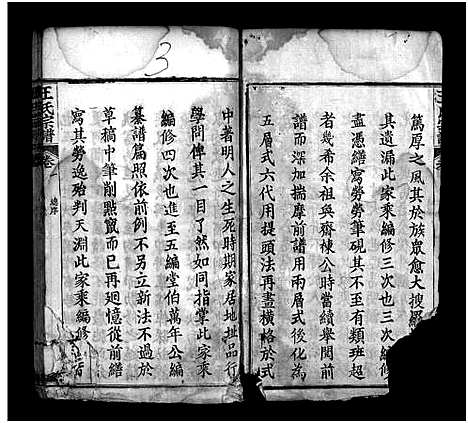 篤厚之風其於族眾愈大搜羅
其遺漏此家乘編修三次也三次編修
盡憑繕寫勞勞筆硯其不至有類班超
者幾希余祖與齊棟公時嘗續舉閱前
譜而深加揣摩前譜用兩層式後化為
五層式六代用提頭法再畫橫格於式
中著明人之生死時期家居地址品行
學問俾其一目了然如同指掌此家乘
編修四次也進至五編堂伯萬年公編
纂譜篇照依前例不另立新法不過於
草稿中筆削點竄而已再迴憶從前繕
寫其勞逸殆判天淵此家乘編修
王氏宗譜
卷
3